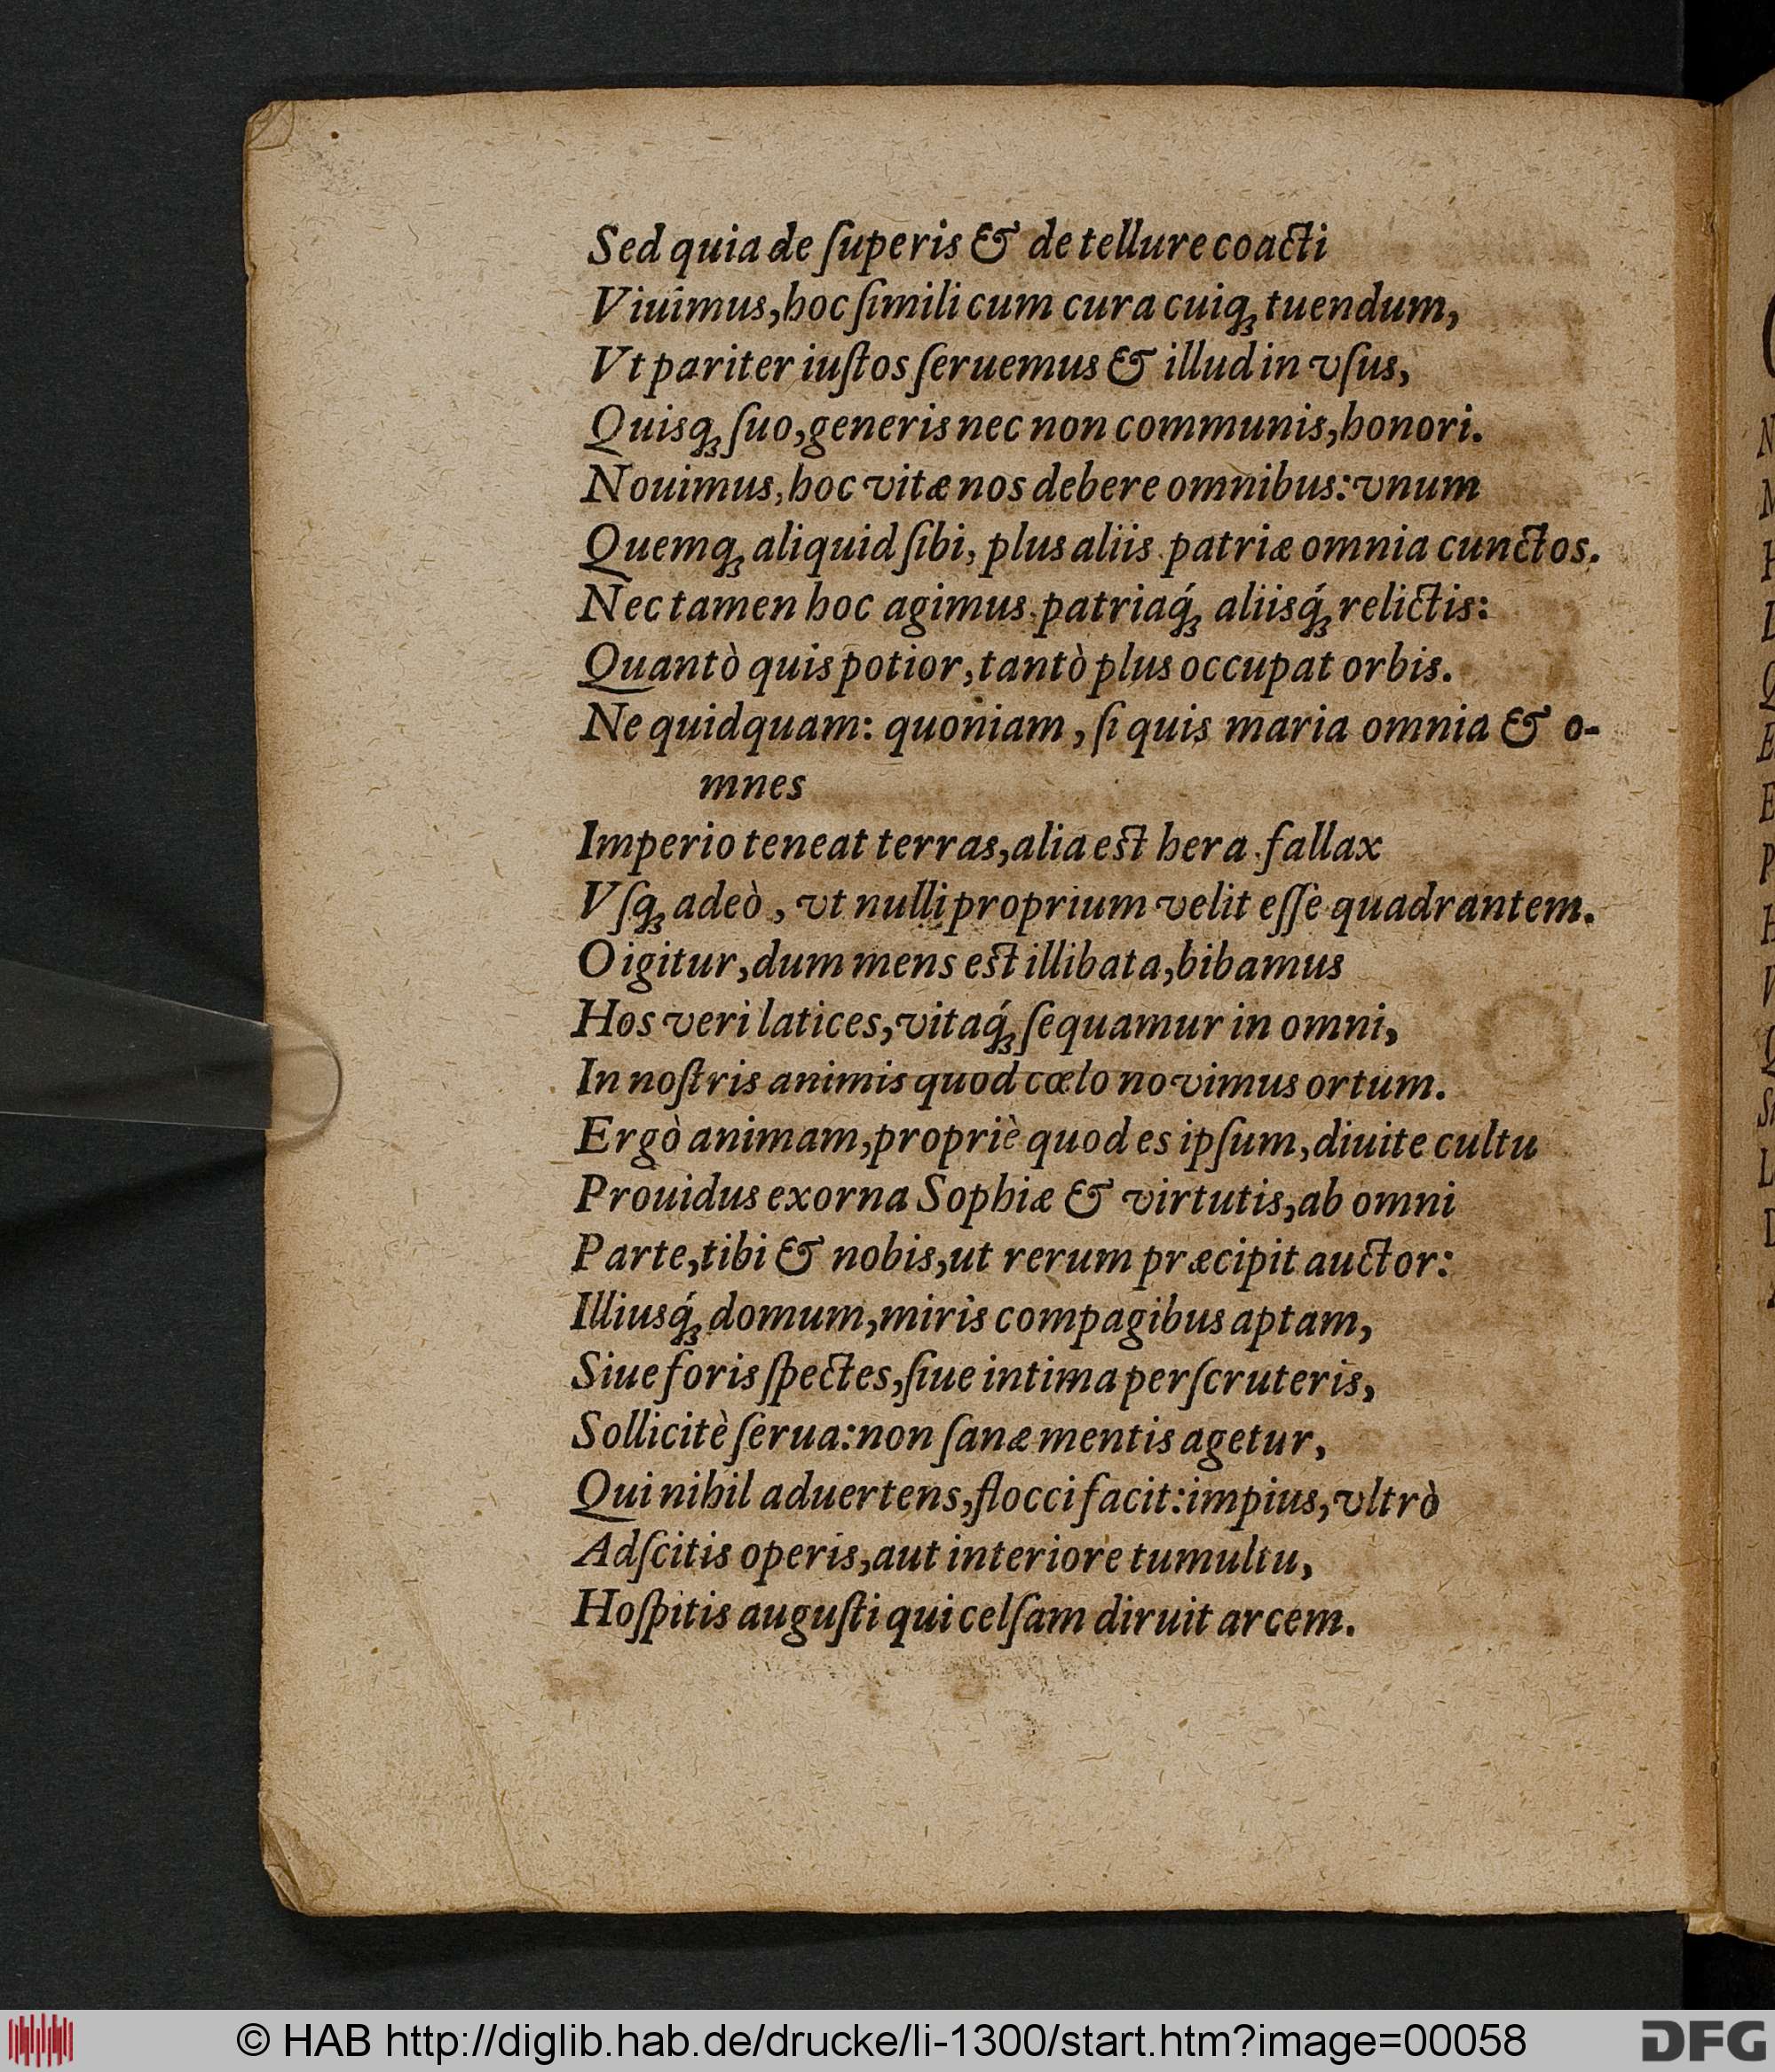 Sed quia de ſuperis & de tellure coacti
Viuimus, hoc ſimili cum cura cuiqꝫ tuendum,
Vt pariter iuſtos ſeruemus & illud in vſus,
Quisqꝫ ſuo, generis nec non communis, honori.
Nouimus, hoc vitæ nos debere omnibus: vnum
Quemqꝫ aliquid ſibi, plus aliis. patriæ omnia cunctos.
Nec tamen hoc agimus. patriaq́ꝫ aliisq́ꝫ relictis:
Quantò quis potior, tantò plus occupat orbis.
Ne quidquam: quoniam, ſi quis maria omnia & o-
mnes
Imperio teneat terras, alia est hera. fallax
Vſqꝫ adeò, vt nulli proprium velit eſſe quadrantem.
O igitur, dum mens est illibata, bibamus
Hos veri latices, vitaq́ꝫ ſequamur in omni,
In noſtris animis quod cœlo novimus ortum.
Ergò animam, propriè quod es ipſum, diuite cultu
Prouidus exorna Sophiæ & virtutis, ab omni
Parte, tibi & nobis, ut rerum præcipit auctor:
Illiusq́ꝫ domum, miris compagibus aptam,
Siue foris ſpectes, ſiue intima perſcruteris,
Sollicitè ſerua: non ſanæ mentis agetur,
Qui nihil aduertens, flocci facit: impius, vltrò
Adſcitis operis, aut interiore tumultu,
Hoſpitis auguſti qui celſam diruit arcem.
© HAB http://diglib.hab.de/drucke/li-1300/start.htm?image=00058
DFG